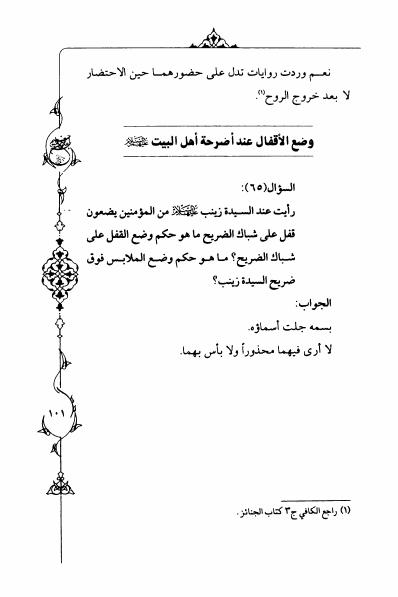 نعـم وردت روايات تدل على حضورهمـا حين الاحتضار
لا بعد خروج الروح(١).
وضع الأقفال عند أضرحة أهل البيت
السؤال(٦٥):
رأيت عند السيدة زينب من المؤمنين يضعون
قفل على شباك الضريح ما هو حكم وضع القفل على
شباك الضريح؟ مـا هـو حكم وضـع الملابـس فوق
ضريح السيدة زينب؟
الجواب:
بسمه جلت أسماؤه.
لا أرى فيهما محذوراً ولا بأس بهما.
١٠١
(١) راجع الكافي ج٣ كتاب الجنائز.